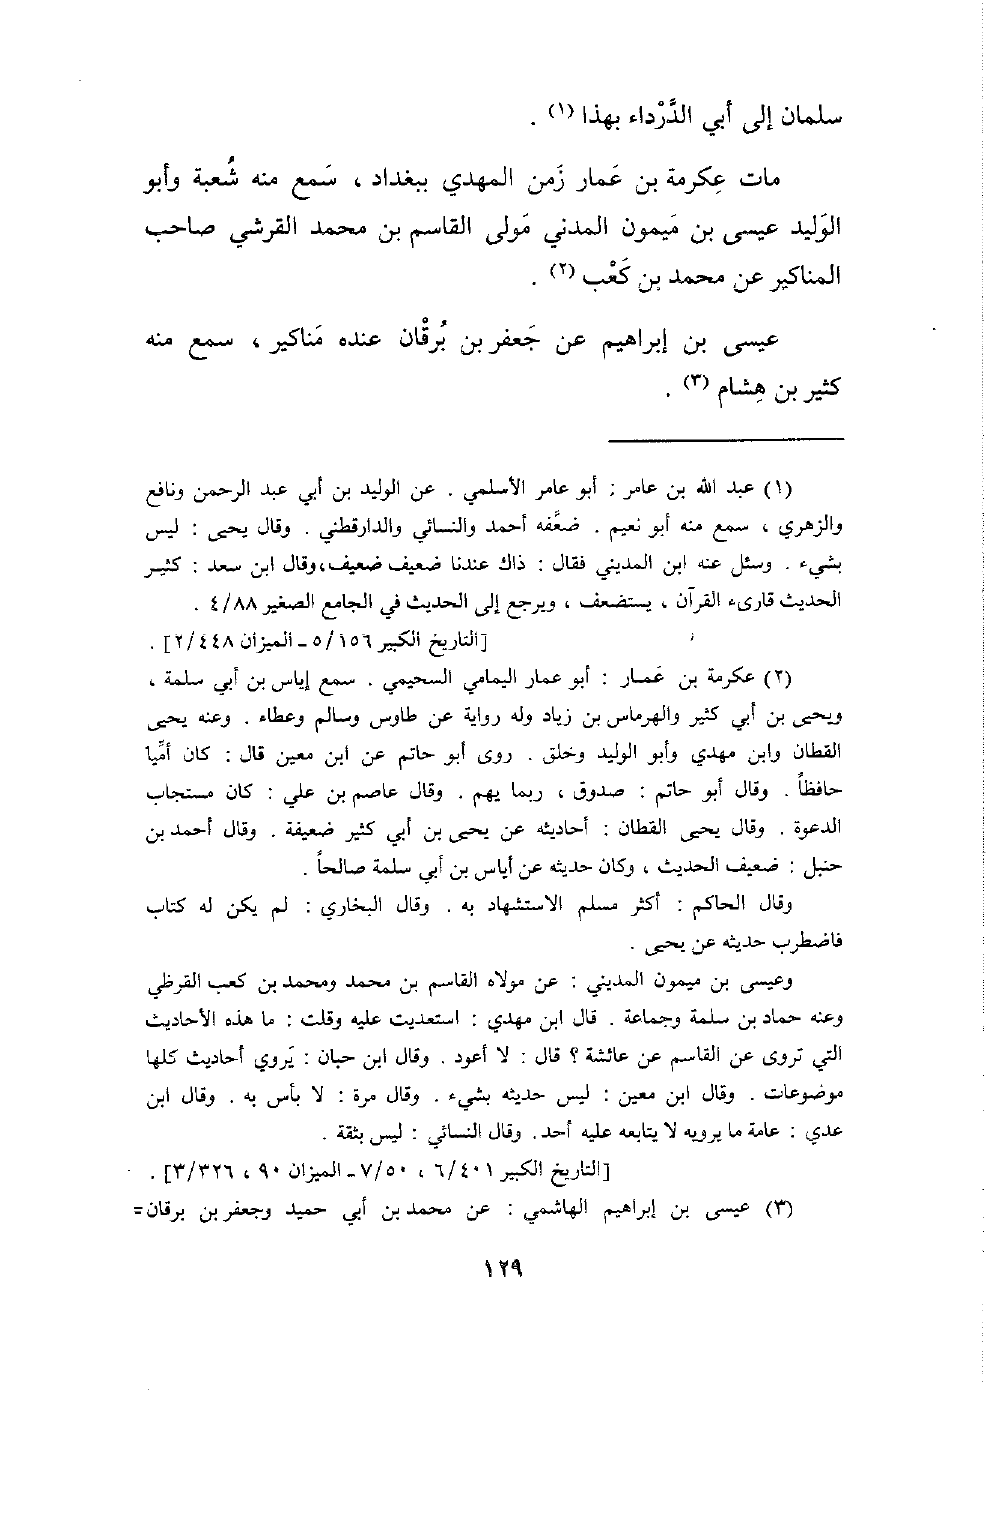 سلمان إلى أبي الدَّرْداء بهذا (١) .
مات عِكرمة بن عَمار زَمن المهدي ببغداد ، سَمع منه شُعبة وأبو
الوَليد عيسى بن مَيمون المدني مَولى القاسم بن محمد القرشي صاحب
المناكير عن محمد بن كَعْب (٢) .
عيسى بن إبراهيم عن جَعفر بن بُرقْان عنده مَناكير ، سمع منه
كثير بن هِشام (٣) .
(١) عبد الله بن عامر : أبو عامر الأسلمي . عن الوليد بن أبي عبد الرحمن ونافع
والزهري ، سمع منه أبو نعيم . ضعَّفه أحمد والنسائي والدارقطني . وقال يحيى : ليس
بشيء . وسئل عنه ابن المديني فقال : ذاك عندنا ضعيف ضعيف،وقال ابن سعد : كثير
الحديث قارىء القرآن ، يستضعف ، ويرجع إلى الحديث في الجامع الصغير ٤/٨٨ .
[التاريخ الكبير ٥/١٥٦ ـ الميزان ٢/٤٤٨] .
(٢) عكرمة بن عَمار : أبو عمار اليمامي السحيمي . سمع إياس بن أبي سلمة ،
ويحيى بن أبي كثير والهرماس بن زياد وله رواية عن طاوس وسالم وعطاء . وعنه يحيى
القطان وابن مهدي وأبو الوليد وخلق . روى أبو حاتم عن ابن معين قال : كان أمِّيا
حافظاً . وقال أبو حاتم : صدوق ، ربما يهم . وقال عاصم بن علي : كان مستجاب
الدعوة . وقال يحيى القطان : أحاديثه عن يحيى بن أبي كثير ضعيفة . وقال أحمد بن
حنبل : ضعيف الحديث ، وكان حديثه عن أياس بن أبي سلمة صالحاً .
وقال الحاكم : أكثر مسلم الاستشهاد به . وقال البخاري : لم يكن له كتاب
فاضطرب حديثه عن يحيى .
وعيسى بن ميمون المديني : عن مولاه القاسم بن محمد ومحمد بن كعب القرظي
وعنه حماد بن سلمة وجماعة . قال ابن مهدي : استعديت عليه وقلت : ما هذه الأحاديث
التي تروى عن القاسم عن عائشة ؟ قال : لا أعود . وقال ابن حبان : يَروي أحاديث كلها
موضوعات . وقال ابن معين : ليس حديثه بشيء . وقال مرة : لا بأس به . وقال ابن
عدي : عامة ما يرويه لا يتابعه عليه أحد. وقال النسائي : ليس بثقة .
[التاريخ الكبير ٦/٤٠١ ، ٧/٥٠ ـ الميزان ٩٠ ، ٣/٣٢٦] .
(٣) عيسى بن إبراهيم الهاشمي : عن محمد بن أبي حميد وجعفر بن برقان=
١٢٩